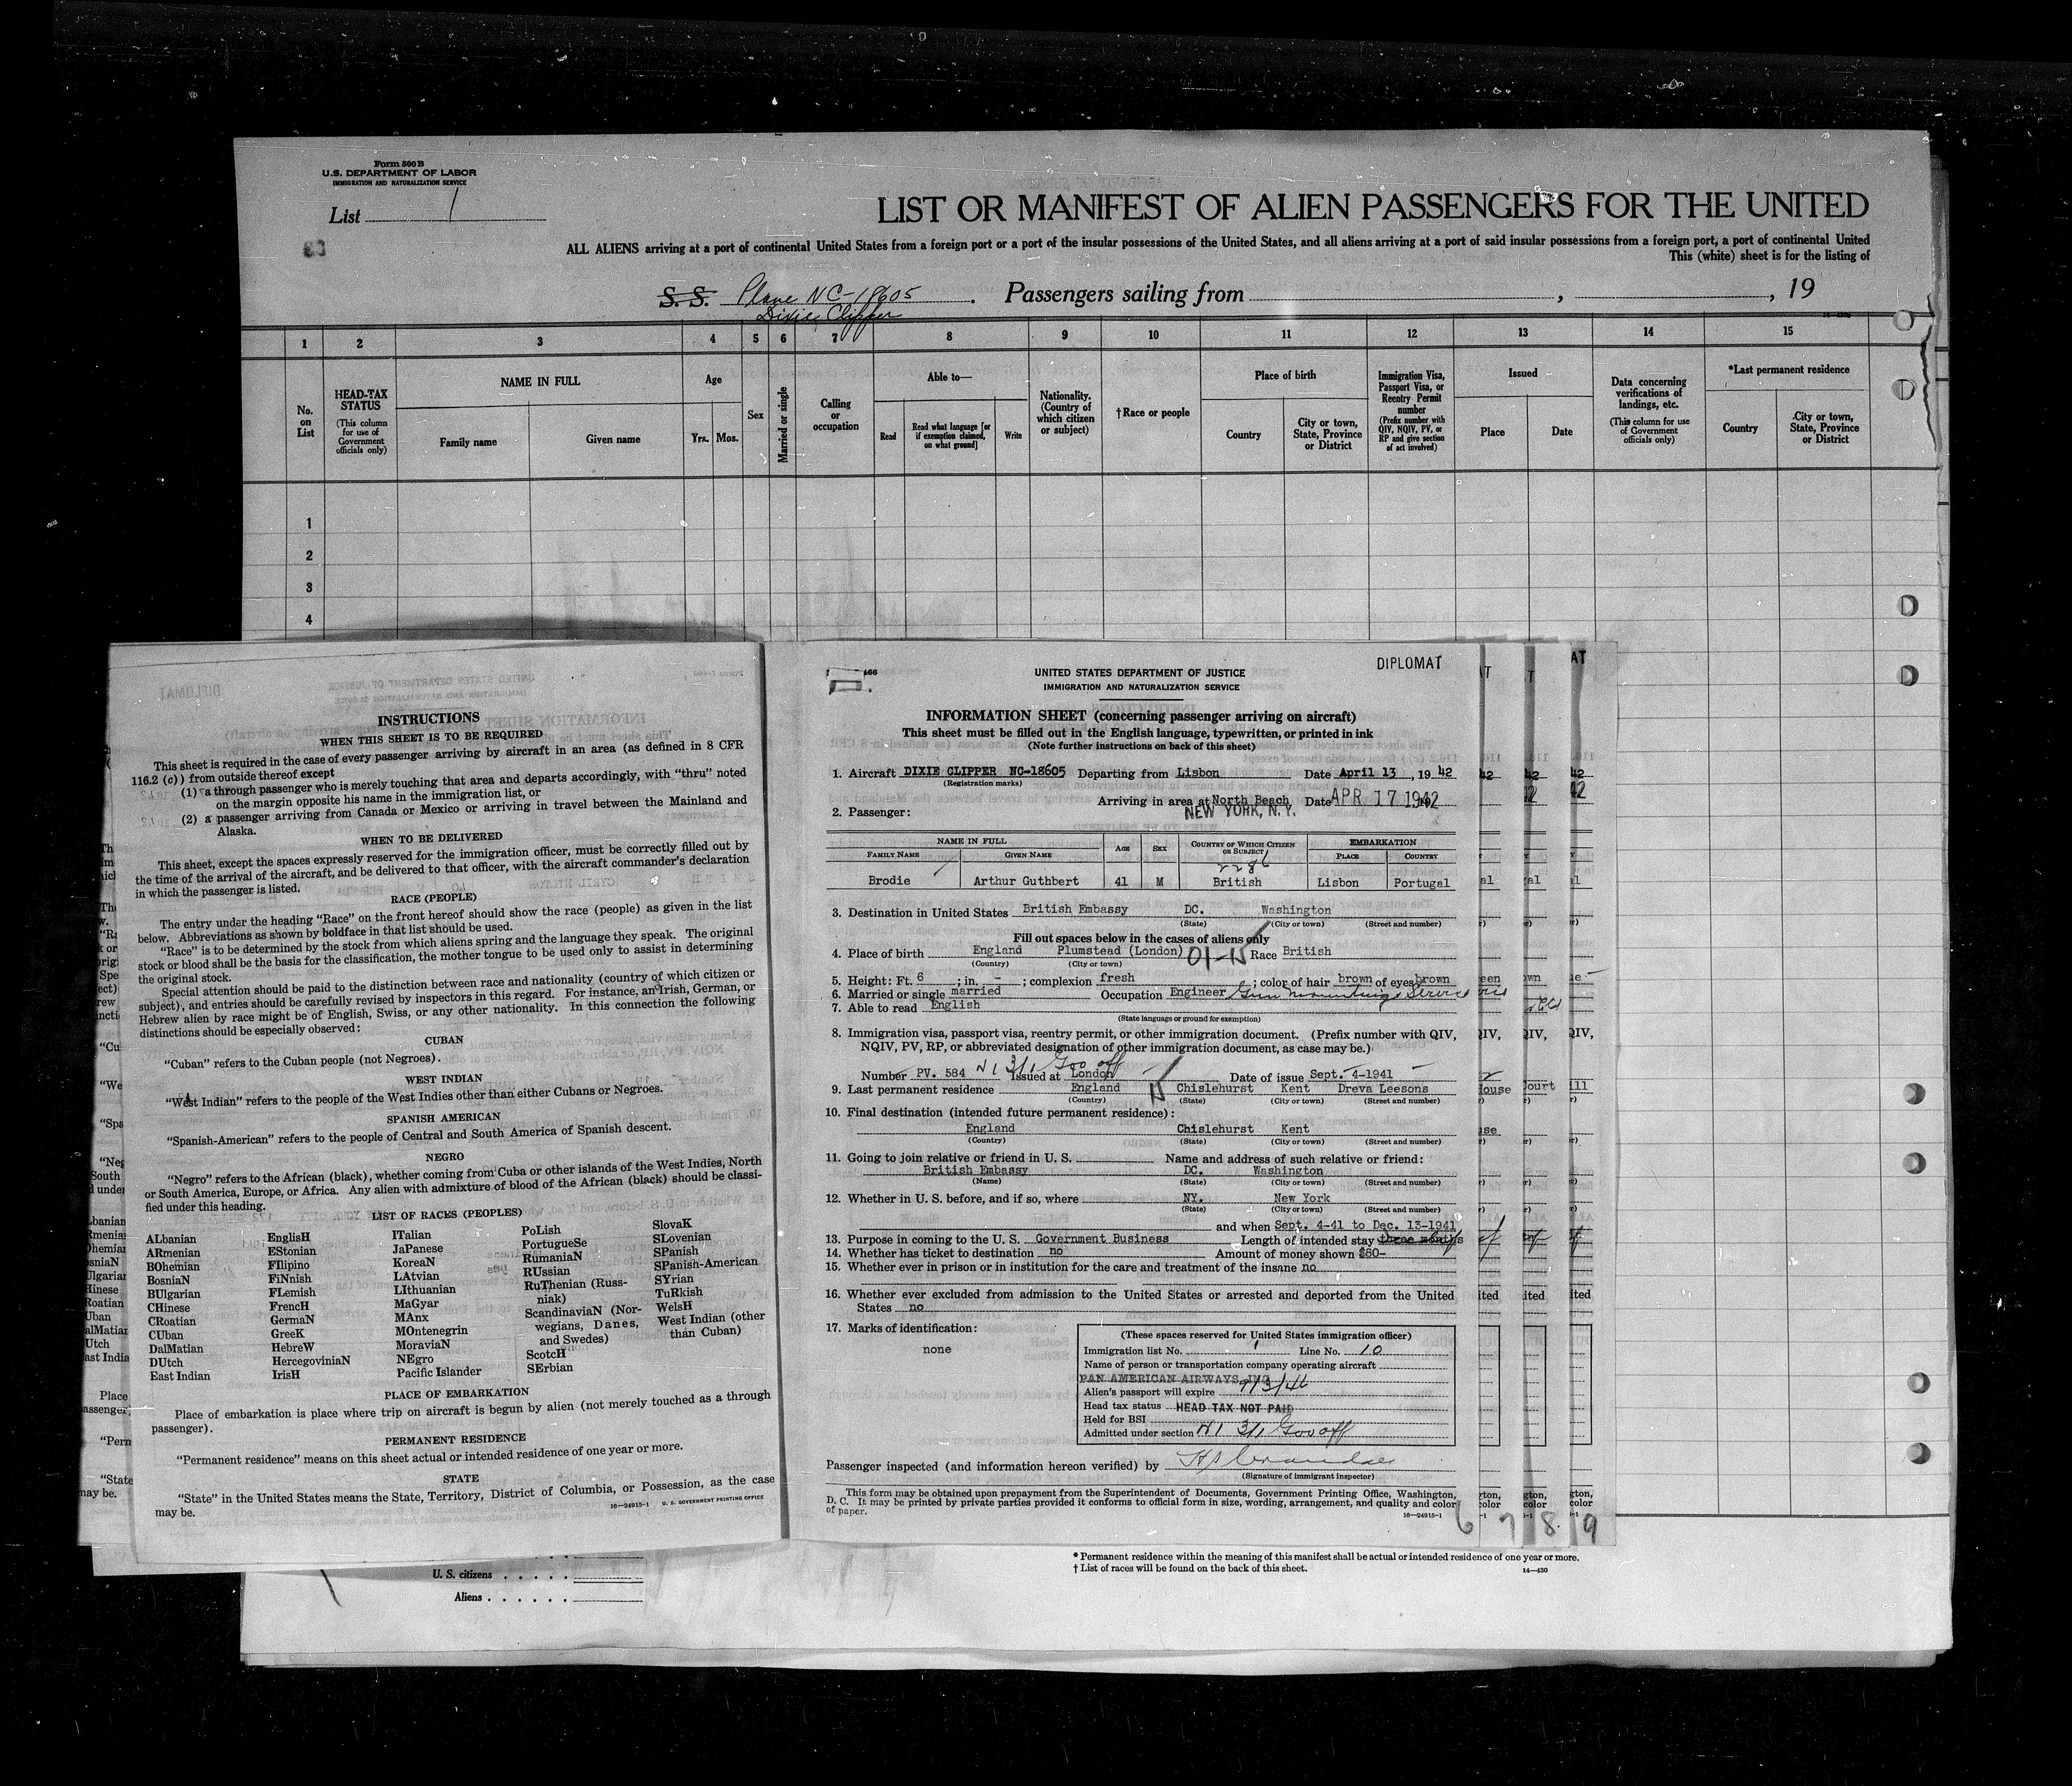 Form 500 B
U.S. DEPARTMENT OF LABOR
IMMIGRATION AND NATURALIZATION SERVICE
List 1
LIST OR MANIFEST OF ALIEN PASSENGERS FOR THE UNITED
ALL ALIENS arriving at a port of continental United States from a foreign port or a port of the insular possessions of the United States, and all aliens arriving at a port of said insular possessions from a foreign port, a port of continental United
This (white) sheet is for the listing of
S. S. Plane NC-18605 . Passengers sailing from , , 19
Dixie Clipper
1 2 3 4 5 6 7 8 9 10 11 12 13 14 15
No. on List
HEAD-TAX STATUS
(This column for use of Government officials only)
NAME IN FULL
Family name Given name
Age
Yrs. Mos.
Sex
Married or single
Calling or occupation
Able to—
Read
Read what language [or if exemption claimed, on what ground]
Write
Nationality. (Country of which citizen or subject)
†Race or people
Place of birth
Country
City or town, State, Province or District
Immigration Visa, Passport Visa, or Reentry Permit number
(Prefix number with QIV, NQIV, PV, or RP and give section of act involved)
Issued
Place Date
Data concerning verifications of landings, etc.
(This column for use of Government officials only)
*Last permanent residence
Country
City or town, State, Province or District
1
2
3
4
INSTRUCTIONS
WHEN THIS SHEET IS TO BE REQUIRED
This sheet is required in the case of every passenger arriving by aircraft in an area (as defined in 8 CFR
116.2 (c)) from outside thereof except
(1) a through passenger who is merely touching that area and departs accordingly, with "thru" noted
on the margin opposite his name in the immigration list, or
(2) a passenger arriving from Canada or Mexico or arriving in travel between the Mainland and
Alaska.
WHEN TO BE DELIVERED
This sheet, except the spaces expressly reserved for the immigration officer, must be correctly filled out by
the time of the arrival of the aircraft, and be delivered to that officer, with the aircraft commander's declaration
in which the passenger is listed.
RACE (PEOPLE)
The entry under the heading "Race" on the front hereof should show the race (people) as given in the list
below. Abbreviations as shown by boldface in that list should be used.
"Race" is to be determined by the stock from which aliens spring and the language they speak. The original
stock or blood shall be the basis for the classification, the mother tongue to be used only to assist in determining
the original stock.
Special attention should be paid to the distinction between race and nationality (country of which citizen or
subject), and entries should be carefully revised by inspectors in this regard. For instance, an Irish, German, or
Hebrew alien by race might be of English, Swiss, or any other nationality. In this connection the following
distinctions should be especially observed:
CUBAN
"Cuban" refers to the Cuban people (not Negroes).
WEST INDIAN
"West Indian" refers to the people of the West Indies other than either Cubans or Negroes.
SPANISH AMERICAN
"Spanish-American" refers to the people of Central and South America of Spanish descent.
NEGRO
"Negro" refers to the African (black), whether coming from Cuba or other islands of the West Indies, North
or South America, Europe, or Africa. Any alien with admixture of blood of the African (black) should be classi-
fied under this heading.
LIST OF RACES (PEOPLES)
ALbanian
ARmenian
BOhemian
BosniaN
BUlgarian
CHinese
CRoatian
CUban
DalMatian
DUtch
East Indian
EnglisH
EStonian
FIlipino
FiNnish
FLemish
FrencH
GermaN
GreeK
HebreW
HercegoviniaN
IrisH
ITalian
JaPanese
KoreaN
LAtvian
LIthuanian
MaGyar
MAnx
MOntenegrin
MoraviaN
NEgro
Pacific Islander
PoLish
PortugueSe
RumaniaN
RUssian
RuThenian (Russ-
niak)
ScandinaviaN (Nor-
wegians, Danes,
and Swedes)
ScotcH
SErbian
SlovaK
SLovenian
SPanish
SPanish-American
SYrian
TuRkish
WelsH
West Indian (other
than Cuban)
PLACE OF EMBARKATION
Place of embarkation is place where trip on aircraft is begun by alien (not merely touched as a through
passenger).
PERMANENT RESIDENCE
"Permanent residence" means on this sheet actual or intended residence of one year or more.
STATE
"State" in the United States means the State, Territory, District of Columbia, or Possession, as the case
may be.
16—24915-1 U. S. GOVERNMENT PRINTING OFFICE
DIPLOMAT
UNITED STATES DEPARTMENT OF JUSTICE
IMMIGRATION AND NATURALIZATION SERVICE
INFORMATION SHEET (concerning passenger arriving on aircraft)
This sheet must be filled out in the English language, typewritten, or printed in ink
(Note further instructions on back of this sheet)
1. Aircraft DIXIE CLIPPER NC-18605 Departing from Lisbon Date April 13 , 19 42
(Registration marks)
Arriving in area at North Beach Date APR 17 1942
NEW YORK, N. Y.
2. Passenger:
NAME IN FULL
FAMILY NAME GIVEN NAME AGE SEX COUNTRY OF WHICH CITIZEN OR SUBJECT EMBARKATION PLACE COUNTRY
2286
Brodie Arthur Guthbert 41 M British Lisbon Portugal
3. Destination in United States British Embassy DC. Washington
(State) (City or town) (Street and number)
Fill out spaces below in the cases of aliens only
4. Place of birth England Plumstead (London) 01-N Race British
(Country) (City or town)
5. Height: Ft. 6 ; in. - ; complexion fresh ; color of hair brown of eyes brown
6. Married or single married Occupation Engineer Gun mountings Service
7. Able to read English
(State language or ground for exemption)
8. Immigration visa, passport visa, reentry permit, or other immigration document. (Prefix number with QIV,
NQIV, PV, RP, or abbreviated designation of other immigration document, as case may be.)
N1 3/1 Gov off
Number PV. 584 Issued at London Date of issue Sept. 4-1941
9. Last permanent residence England Chislehurst Kent Dreva Leesons
(Country) (State) (City or town) (Street and number)
10. Final destination (intended future permanent residence):
England Chislehurst Kent
(Country) (State) (City or town) (Street and number)
11. Going to join relative or friend in U. S. Name and address of such relative or friend:
British Embassy DC. Washington
(Name) (State) (City or town) (Street and number)
12. Whether in U. S. before, and if so, where NY. New York
(State) (City or town) (Street and number)
and when Sept. 4-41 to Dec. 13-1941
13. Purpose in coming to the U. S. Government Business Length of intended stay three months
14. Whether has ticket to destination no Amount of money shown $60-
15. Whether ever in prison or in institution for the care and treatment of the insane no
16. Whether ever excluded from admission to the United States or arrested and deported from the United
States no
17. Marks of identification:
none
(These spaces reserved for United States immigration officer)
Immigration list No. 1 Line No. 10
Name of person or transportation company operating aircraft
PAN AMERICAN AIRWAYS, INC
Alien's passport will expire 9/3/46
Head tax status HEAD TAX NOT PAID
Held for BSI
Admitted under section N1 3/1 Gov off
Passenger inspected (and information hereon verified) by
(Signature of immigrant inspector)
This form may be obtained upon prepayment from the Superintendent of Documents, Government Printing Office, Washington,
D. C. It may be printed by private parties provided it conforms to official form in size, wording, arrangement, and quality and color
of paper.
16—24915-1
6 7 8 9
U. S. citizens
Aliens
* Permanent residence within the meaning of this manifest shall be actual or intended residence of one year or more.
† List of races will be found on the back of this sheet.
14—430